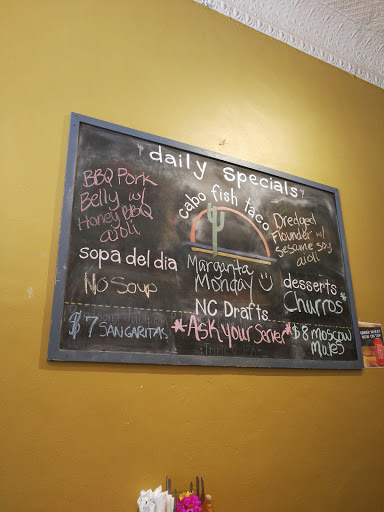 daily specials
BBQ Pork
Belly w/
Honey BBQ
aioli
cabo fish taco
Dredged
Flounder w/
Sesame soy
aioli
sopa del dia
No Soup
Margarita
Monday
desserts
Churros
NC Drafts
*Ask your Server*
$7 SANGARITAS
$8 Moscow
Mules